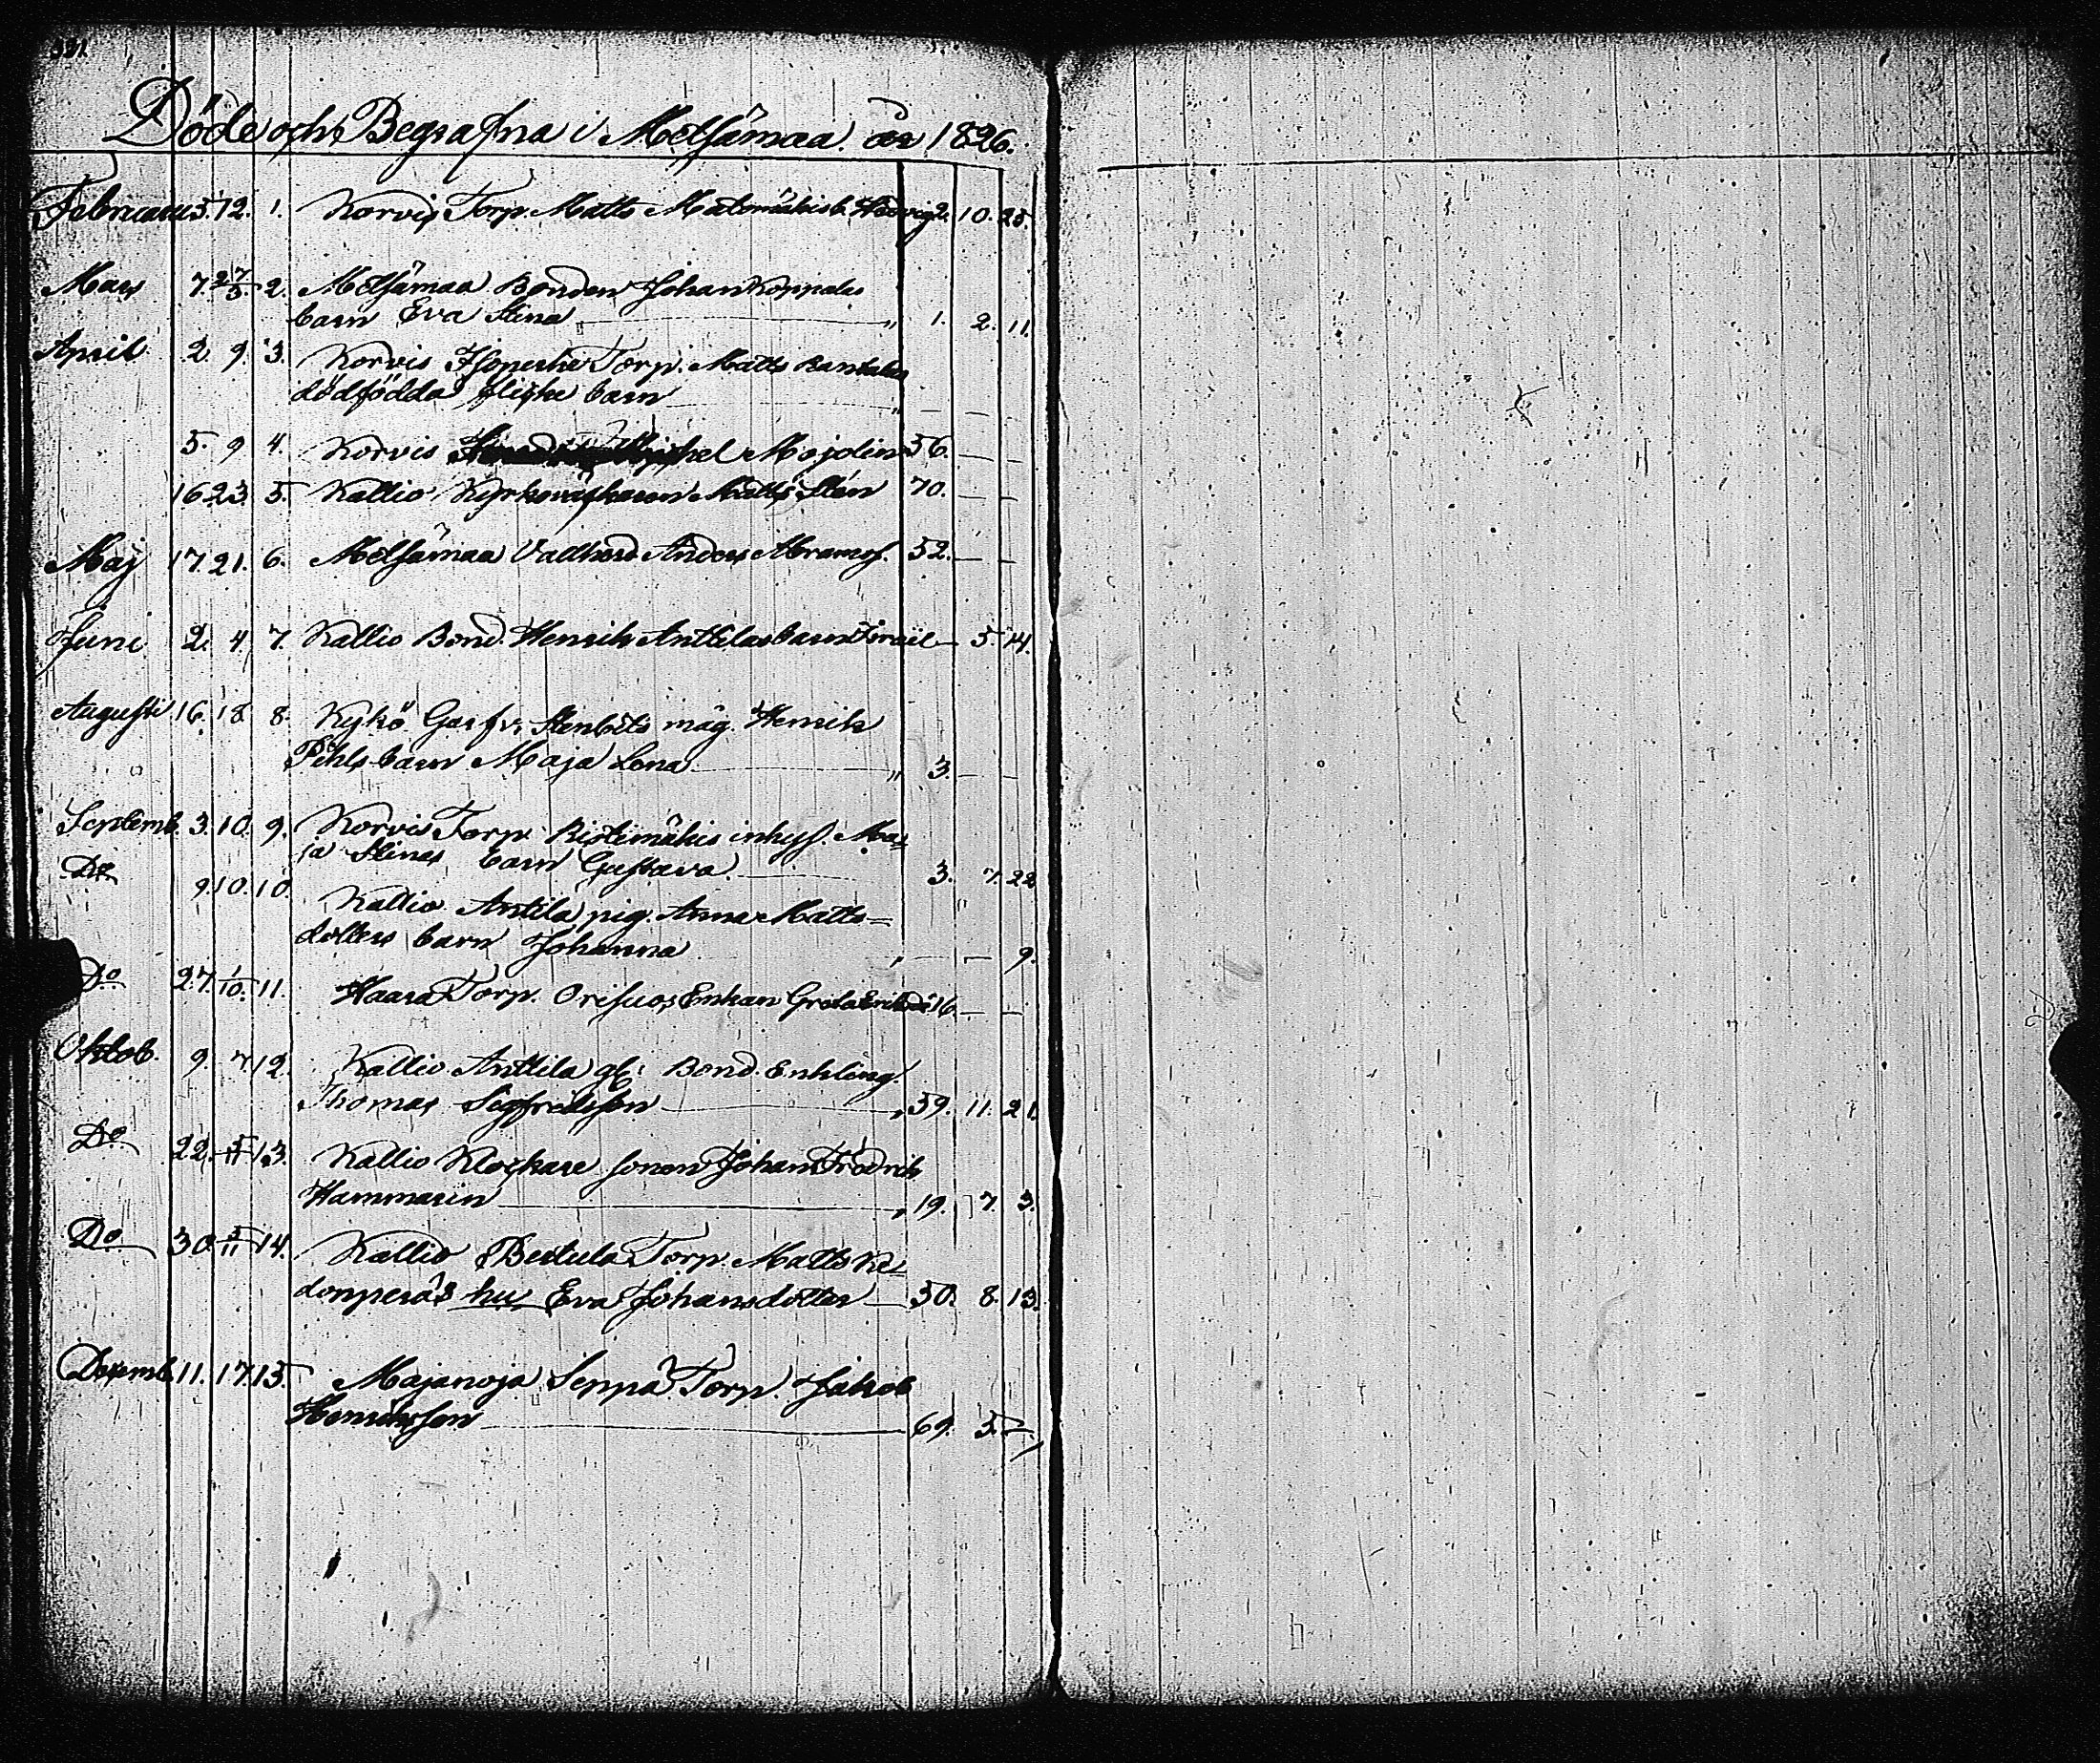 Döde och Begrafna i Metsämaa år 1826.
Februari 5. 12. 1. Korvis Torp. Matts Matomäkis b. Hedvig 2. 10. 25.
Mars 7. 27/3. 2. Metsämaa Bonden Johan Koppalas
barn Eva Stina " 1. 2. 11.
April 2. 9. 3. Korvis Isoperhe Torp. Matts Rantalas
dödfödda flicke barn " — — —
5. 9 4. Korvis Michel Mojolin 56. — —
16. 23. 5. Kallio Kyrkovägtaren Matts Sten 70. — —
Maj 17. 21. 6. Metsämaa Vallherd. Anders Abramss. 52. — —
Juni 2. 4. 7. Kallio Bond. Henrik Anttilas barn Israel — 5. 14.
Augusti 16. 18. 8. Kykö Garfv. Stenbäls måg. Henrik
Pihls barn Maja Lena " 3. — —
Septemb. 3. 10. 9. Korvis Torp. Ristimäkis inhys. Ma=
ja Stinas barn Gustava. 3. 7. 22
Do 9. 10. 10. Kallio Antila pig. Anna Matts=
dotters barn Johanna " — — 9.
Do 27. 1/10. 11. Haara Torp. Orisuos Enkan Greta 16. — —
Oktob. 9. 7 12. Kallio Anttila gl. Bond. Enkling.
Thomas Sigfredsson " 59. 11. 21.
Do 22. 5/11 13. Kallio Klockare sonen Johan Fredrik
Hammarin " 19. 7. 3.
Do 30. 5/11 14. Kallio Bertula Torp. Matts Ke=
donperäs hu Eva Johansdotter — 50. 8. 13.
Decemb. 11. 17. 15. Majanoja Seppä Torp. Jakob
Henriksson 69. 5. —